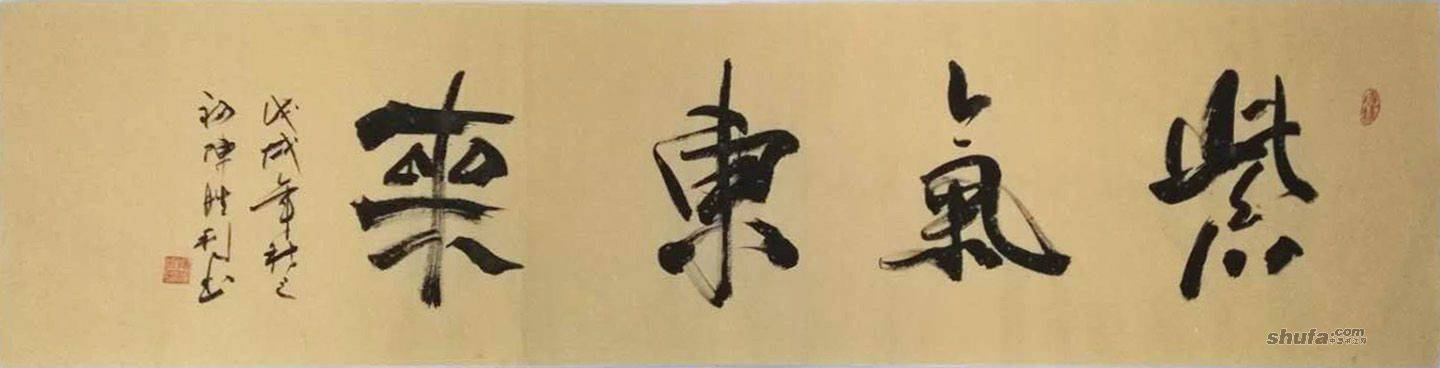 紫氣東來
戊戌年秋之
初陳勝利書
shufa.com